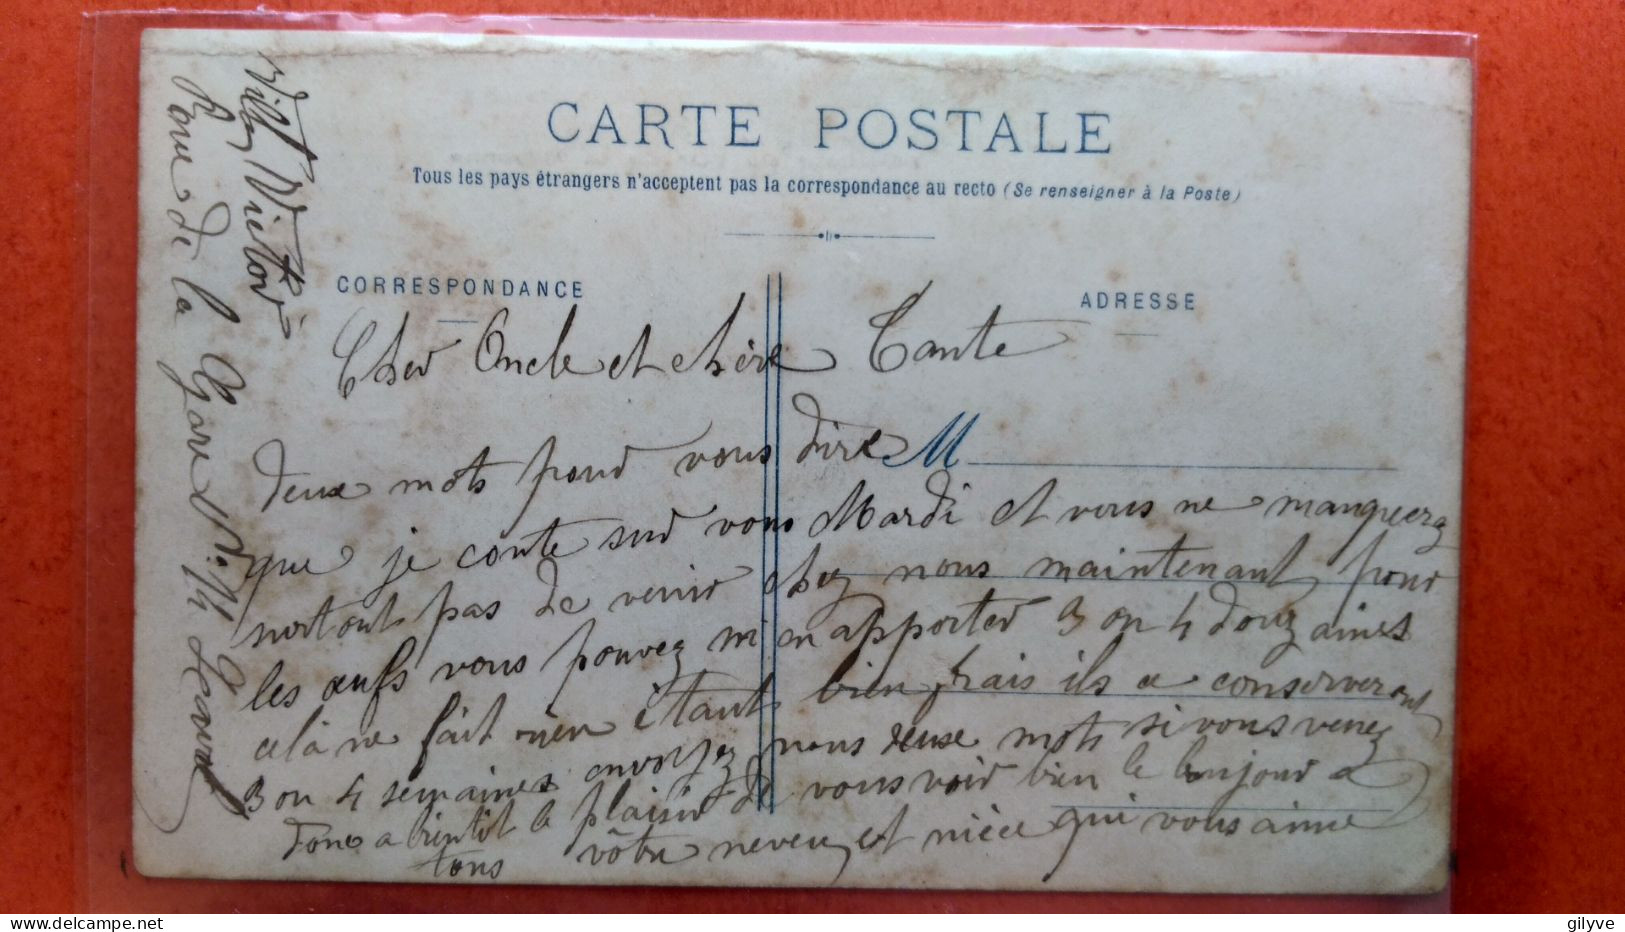 CARTE POSTALE
Tous les pays étrangers n'acceptent pas la correspondance au recto (Se renseigner à la Poste)
CORRESPONDANCE
ADRESSE
Cher Oncle et chère Tante
deux mots pour vous dire M
que je conte sur vous Mardi et vous ne manquerez
surtout pas de venir chez nous maintenant pour
les œufs vous pouvez m'en apporter 3 ou 4 douzaines
cela ne fait rien étant bien frais ils ce conserveront
3 ou 4 semaines envoyez nous deux mots si vous venez
donc a bientôt le plaisir de vous voir bien le bonjour a
tous vôtre neveu et nièce qui vous aime
Victor
Roue de la Gare N.º 14
gilyve